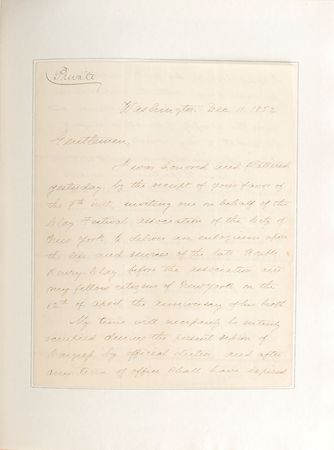 Private
Washington, Dec 11. 1852
Gentlemen,
I was honored and flattered
yesterday, by the receipt of your favor of
the 8th inst, inviting me on behalf of the
Clay Festival association of the City of
New York to deliver an eulogium upon
the life and services of the late Honble
Henry Clay before the association and
my fellow citizens of New York on the
12th of April the anniversary of his birth
My time will necessarily be entirely
occupied during the present session of
Congress by official duties, and after
my term of office shall have expired